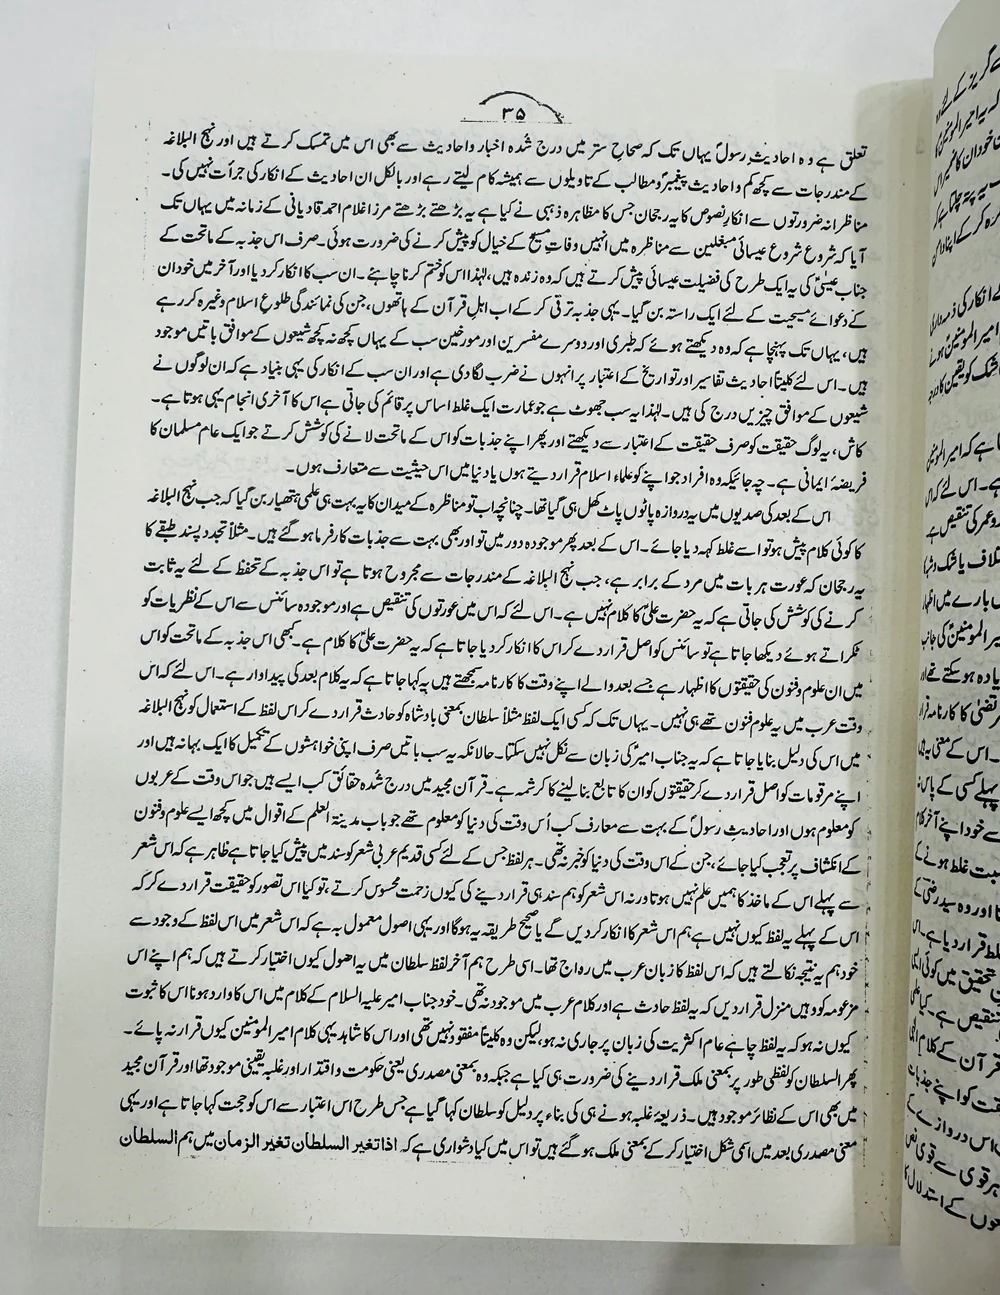 ۳۵
تعلق ہے وہ احادیثِ رسولؐ یہاں تک کہ صحاحِ ستر میں درج شُدہ اخبار واحادیث سے بھی اس میں تمسک کرتے ہیں اور نہج البلاغہ
کے مندرجات سے کچھ کم و احادیث پیغمبرؐ و مطالب کے تاویلوں سے ہمیشہ کام لیتے رہے اور بالکل ان احادیث کے انکار کی جرأت نہیں کی۔
مناظرانہ ضرورتوں سے انکارِ نصوص کا یہ رجحان جس کا مظاہرہ ذہبی نے کیا ہے یہ بڑھتے بڑھتے مرزا غلام احمد قادیانی کے زمانہ میں یہاں تک
آیا کہ شروع شروع عیسائی مبغلین سے مناظرہ میں انہیں وفاتِ مسیح کے خیال کو پیش کرنے کی ضرورت ہوئی۔ صرف اس جذبہ کے ماتحت کے
جناب عیسٰیؑ کی یہ ایک طرح کی فضیلت عیسائی پیش کرتے ہیں کہ وہ زندہ ہیں، لہٰذا اس کو ختم کرنا چاہئے۔ ان سب کا انکار کر دیا اور آخر میں خود ان
کے دعوائے مسیحیت کے لئے ایک راستہ بن گیا۔ یہی جذبہ ترقی کر کے اب اہلِ قرآن کے ہاتھوں، جن کی نمائندگی طلوعِ اسلام وغیرہ کر رہے
ہیں، یہاں تک پہنچا ہے کہ وہ دیکھتے ہوئے کہ طبری اور دوسرے مفسرین اور مورخین سب کے یہاں کچھ نہ کچھ شیعوں کے موافق باتیں موجود
ہیں۔ اس لئے کلیتاً احادیث تفاسیر اور تواریخ کے اعتبار پر انہوں نے ضرب لگا دی ہے اور ان سب کے انکار کی یہی بنیاد ہے کہ ان لوگوں نے
شیعوں کے موافق چیزیں درج کی ہیں۔ لہٰذا یہ سب جھوٹ ہے جو عمارت ایک غلط اساس پر قائم کی جاتی ہے اس کا آخری انجام یہی ہوتا ہے۔
کاش، یہ لوگ حقیقت کو صرف حقیقت کے اعتبار سے دیکھتے اور پھر اپنے جذبات کو اس کے ماتحت لانے کی کوشش کرتے جو ایک عام مسلمان کا
فریضہٴ ایمانی ہے۔ چہ جائیکہ وہ افراد جو اپنے کو علماء اسلام قرار دیتے ہوں یا دنیا میں اس حیثیت سے متعارف ہوں۔
اس کے بعد کی صدیوں میں یہ دروازہ پاٹوں پاٹ کھل ہی گیا تھا۔ چنانچہ اب تو مناظرہ کے میدان کا یہ بہت ہی علمی ہتھیار بن گیا کہ جب نہج البلاغہ
کا کوئی کلام پیش ہو تو اسے غلط کہہ دیا جائے۔ اس کے بعد پھر موجودہ دور میں تو اور بھی بہت سے جذبات کارفرما ہو گئے ہیں۔ مثلاً تجدد پسند طبقے کا
یہ رجحان کہ عورت ہر بات میں مرد کے برابر ہے، جب نہج البلاغہ کے مندرجات سے مجروح ہوتا ہے تو اس جذبہ کے تحفظ کے لئے یہ ثابت
کرنے کی کوشش کی جاتی ہے کہ یہ حضرت علیؑ کا کلام نہیں ہے۔ اس لئے کہ اس میں عورتوں کی تنقیص ہے اور موجودہ سائنس سے اس کے نظریات کو
ٹکراتے ہوئے دیکھا جاتا ہے تو سائنس کو اصل قرار دے کر اس کا انکار کر دیا جاتا ہے کہ یہ حضرت علیؑ کا کلام ہے۔ کبھی اس جذبہ کے ماتحت کو اس
میں ان علوم و فنون کی حقیقتوں کا اظہار ہے جسے بعد والے اپنے وقت کا کارنامہ سمجھتے ہیں یہ کہا جاتا ہے کہ یہ کلام بعد کی پیداوار ہے۔ اس لئے کہ اس
وقت عرب میں یہ علوم فنون تھے ہی نہیں۔ یہاں تک کہ کسی ایک لفظ مثلاً سلطان بمعنی بادشاہ کو حادث قرار دے کر اس لفظ کے استعمال کو نہج البلاغہ
میں اس کی دلیل بنایا جاتا ہے کہ یہ جناب امیرؑ کی زبان سے نکل نہیں سکتا۔ حالانکہ یہ سب باتیں صرف اپنی خواہشوں کے تکمیل کا ایک بہانہ ہیں اور
اپنے مرقومات کو اصل قرار دے کر حقیقتوں کو ان کا تابع بنا لینے کا کرشمہ ہے۔ قرآن مجید میں درج شُدہ حقائق کب ایسے ہیں جو اس وقت کے عربوں
کو معلوم ہوں اور احادیث رسولؐ کے بہت سے معارف کب اُس وقت کی دنیا کو معلوم تھے جو باب مدینۃ العلم کے اقوال میں کچھ ایسے علوم و فنون
کے انکشاف پر تعجب کیا جائے، جن کے اس وقت کی دنیا کو خبر نہ تھی۔ ہر لفظ جس کے لئے کسی قدیم عربی شعر کو سند میں پیش کیا جاتا ہے ظاہر ہے کہ اس شعر
سے پہلے اس کے ماخذ کا ہمیں علم نہیں ہوتا ورنہ اس شعر کو ہم سند ہی قرار دینے کی کیوں زحمت محسوس کرتے، تو کیا اس تصور کو حقیقت قرار دے کر کہ
اس کے پہلے یہ لفظ کیوں نہیں ہے ہم اس شعر کا انکار کر دیں گے یا صحیح طریقہ یہ ہوگا اور یہی اصول معمول بہ ہے کہ اس شعر میں اس لفظ کے وجود سے
خود ہم یہ نتیجہ نکالتے ہیں کہ اس لفظ کا زبان عرب میں رواج تھا۔ اسی طرح ہم آخر لفظ سلطان میں یہ اصول کیوں اختیار کرتے ہیں کہ ہم اپنے اس
مزعومہ کو وہیں منزل قرار دیں کہ یہ لفظ حادث ہے اور کلام عرب میں موجود نہ تھی۔ خود جناب امیر علیہ السلام کے کلام میں اس کا وارد ہونا اس کا ثبوت
کیوں نہ ہو کہ یہ لفظ چاہے عام اکثریت کی زبان پر جاری نہ ہو، لیکن وہ کلیتاً مفقود نہیں تھی اور اس کا شاہد یہی کلام امیر المومنین کیوں قرار نہ پائے۔
پھر السلطان کو لفظی طور پر بمعنی ملک قرار دینے کی ضرورت ہی کیا ہے جبکہ وہ بمعنی مصدری یعنی حکومت و اقتدار اور غلبہ یقینی موجود تھا اور قرآن مجید
میں بھی اس کے نظائر موجود ہیں۔ ذریعہ غلبہ ہونے ہی کی بناء پر دلیل کو سلطان کہا گیا ہے جس طرح اس اعتبار سے اس کو حجت کہا جاتا ہے اور یہی
معنی مصدری بعد میں اسمی شکل اختیار کر کے بمعنی ملک ہو گئے ہیں تو اس میں کیا دشواری ہے کہ اذا تغیر السلطان تغیر الزمان میں ہم السلطان